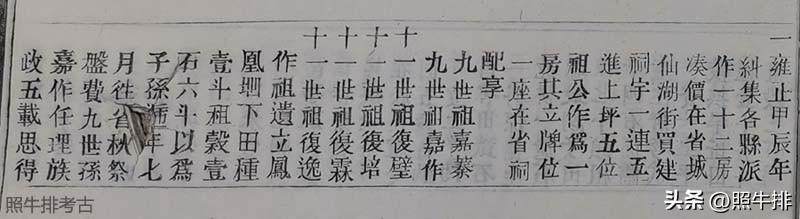 一雍止甲辰年
糾集各縣派
作一十二房
湊價在省城
仙湖街買建
祠宇一連五
進上坪五位
祖公作為一
房其立牌位
一座在省祠
配享
九世祖嘉蓁
九世祖嘉作
十一世祖復璧
十一世祖復培
十一世祖復霖
十一世祖復逸
作祖遺立鳳
凰㘵下田種
壹斗租穀壹
石六斗以為
子孫遞年七
月徃省秋祭
盤費九世孫
嘉作任理族
政五載思得
照牛排考古
头条 @照牛排